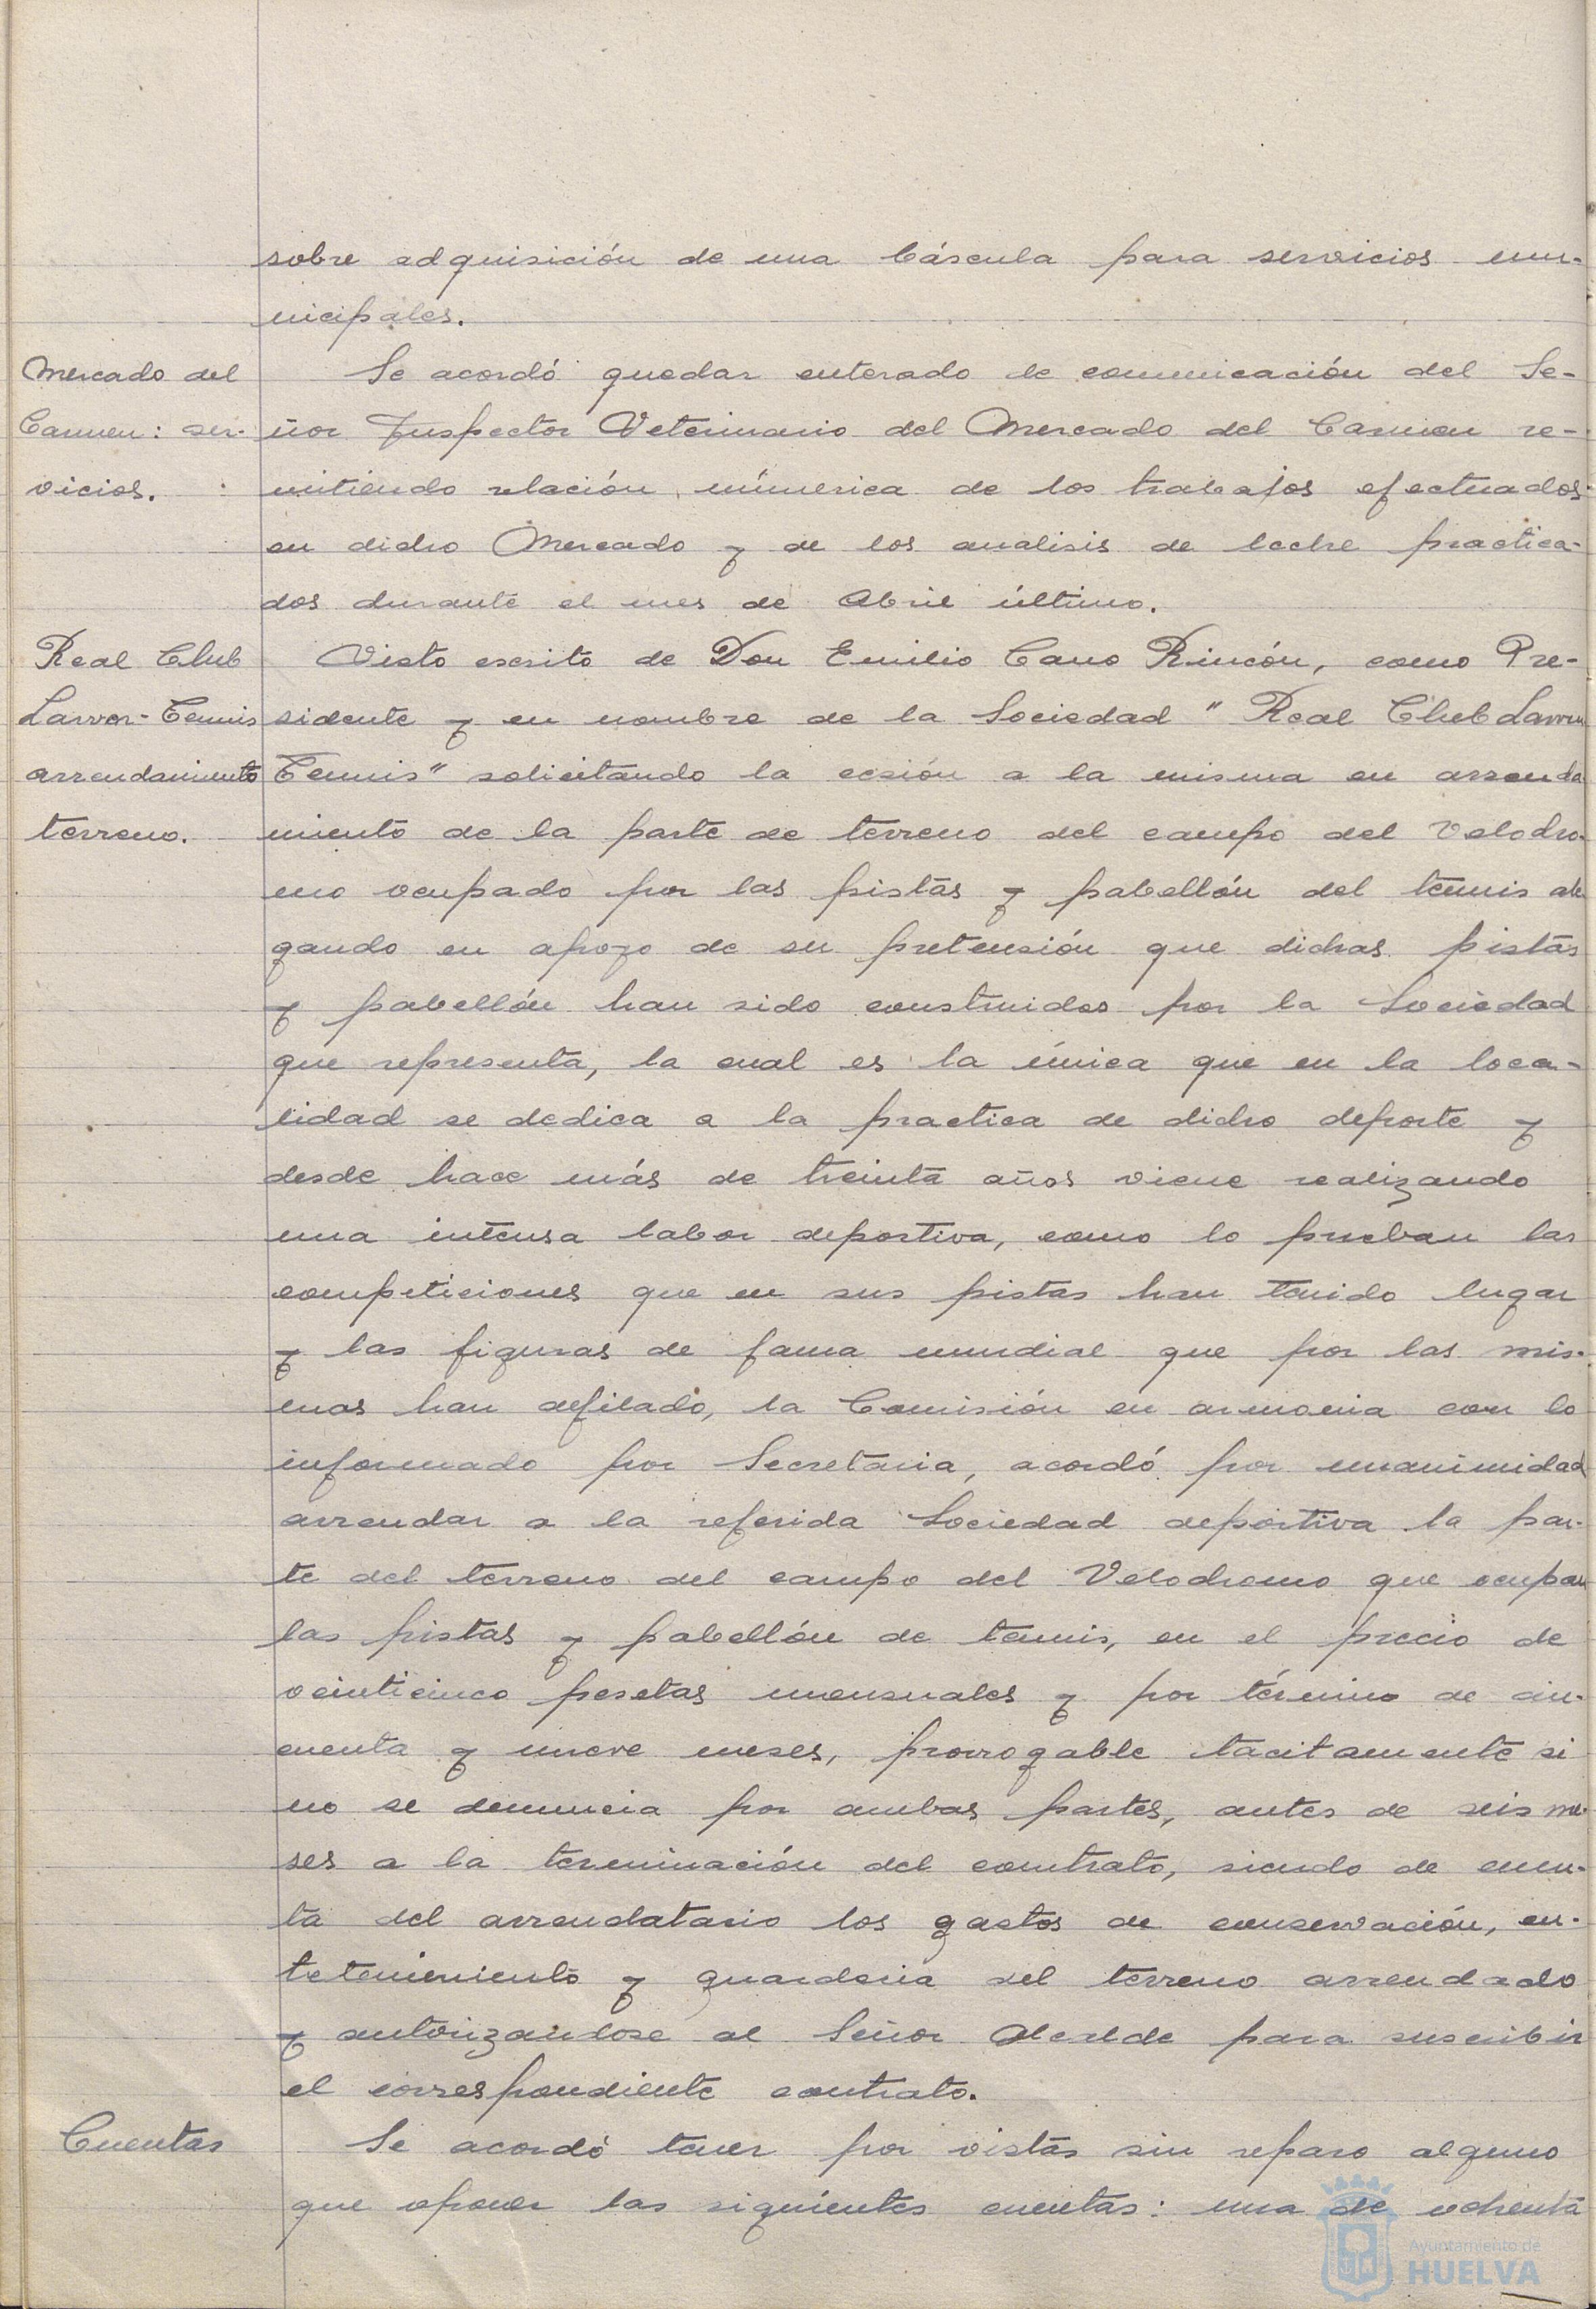 sobre adquisición de una báscula para servicios mu-
nicipales.
Mercado del
Carmen: ser-
vicios.
Se acordó quedar enterado de comunicación del Se-
ñor Inspector Veterinario del Mercado del Carmen re-
mitiendo relación númerica de los trabajos efectuados
en dicho Mercado y de los analisis de leche practica-
dos durante el mes de Abril último.
Real Club
Lawn-Tennis
arrendamiento
terreno.
Visto escrito de Don Emilio Cano Rincón, como Pre-
sidente y en nombre de la Sociedad "Real Club Lawn
Tennis" solicitando la cesión a la misma en arrenda
miento de la parte de terreno del campo del Velodro-
mo ocupado por las pistas y pabellón del tennis ale
gando en apoyo de su pretensión que dichas pistas
y pabellón han sido construidos por la Sociedad
que representa, la cual es la única que en la loca-
lidad se dedica a la practica de dicho deporte y
desde hace más de treinta años viene realizando
una intensa labor deportiva, como lo prueban las
competiciones que en sus pistas han tenido lugar
y las figuras de fama mundial que por las mis-
mas han defilado, la Comisión en armonia con lo
informado por Secretaria, acordó por unanimidad
arrendar a la referida Sociedad deportiva la par-
te del terreno del campo del Velodromo que ocupan
las pistas y pabellón de tennis, en el precio de
veinticinco pesetas mensuales y por término de cin-
cuenta y nueve meses, prorrogable tacitamente si
no se denuncia por ambas partes, antes de seis me-
ses a la terminación del contrato, siendo de cuen-
ta del arrendatario los gastos de conservación, en-
tretenimiento y guarderia del terreno arrendado
y autorizandose al Señor Alcalde para suscribir
el correspondiente contrato.
Cuentas
Se acordó tener por vistas sin reparo alguno
que oponer las siguientes cuentas: una de ochenta
Ayuntamiento de
HUELVA